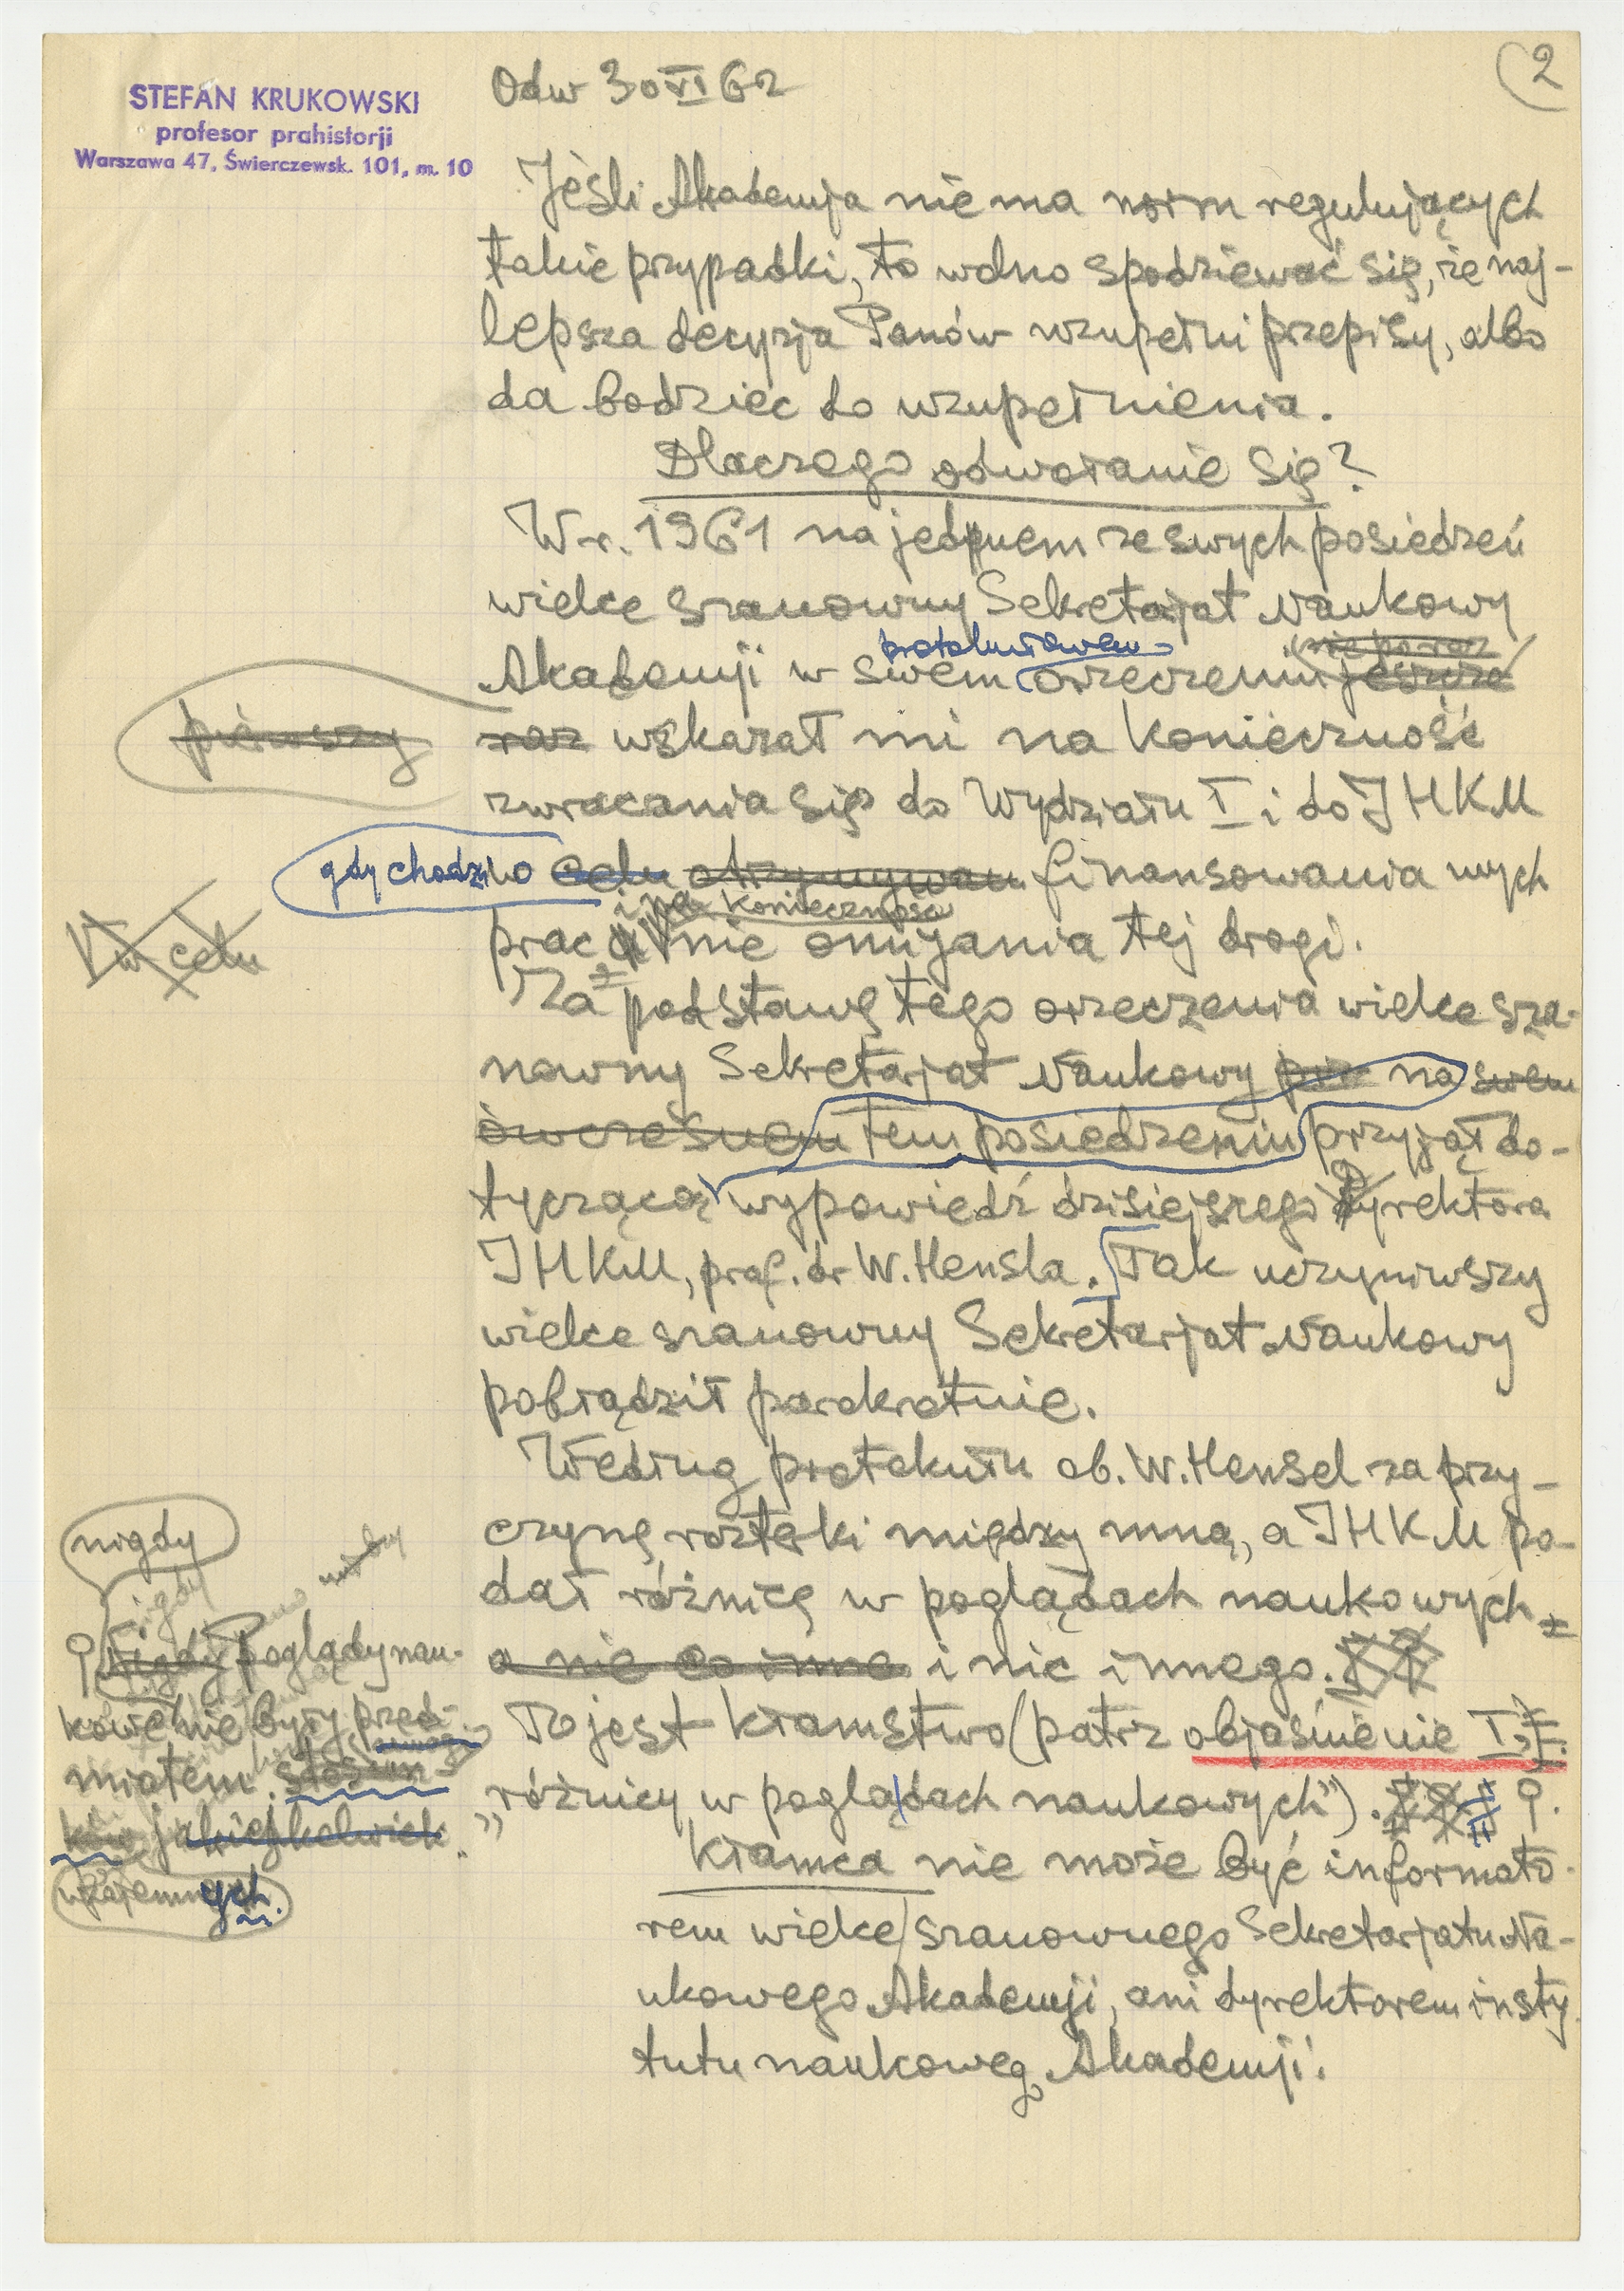 STEFAN KRUKOWSKI
profesor prahistorji
Warszawa 47, Świerczewsk. 101, m. 10
Odw 30 VI 62
2
Jeśli Akademja nie ma norm regulujących
takie przypadki, to wolno spodziewać się, że naj-
lepsza decyzja Panów uzupełni przepisy, albo
da bodziec do uzupełnienia.
Dlaczego odwołanie się?
W r. 1961 na jednem ze swych posiedzeń
wielce szanowny Sekretarjat Naukowy
protokułowem nie poraz
Akademji w swem orzeczeniu jeszcze
pierwszy
raz wskazał mi na konieczność
zwracania się do Wydziału I i do IHKM
gdy chodziło celu otrzymywan finansowania mych
i na konieczność
V w celu
prac i nie omijania tej drogi.
Za podstawę tego orzeczenia wielce sza-
nowny Sekretarjat Naukowy na swem
ówczesnem tem posiedzeniu przyjął do-
tyczącą wypowiedź dzisiejszego Dyrektora
IHKM, prof. dr W. Hensla. Tak uczyniwszy
wielce szanowny Sekretarjat Naukowy
pobłądził parokrotnie.
Według protokułu ob. W. Hensel za przy-
czynę rozterki między mną, a IHKM po-
dał różnicę w poglądach naukowych
a nie co inne i nic innego.
To jest kłamstwo (patrz objaśnienie I,
"różnicy w poglądach naukowych").
Kłamca nie może być informato-
rem wielce szanownego Sekretarjatu Na-
ukowego Akademji, ani dyrektorem insty-
tutu naukowego Akademji.
nigdy
nigdy
Nigdy Poglądy nau-
kowe nie były przed-
miotem stosun-
ków jakiejkolwiek.
wzajemnych.